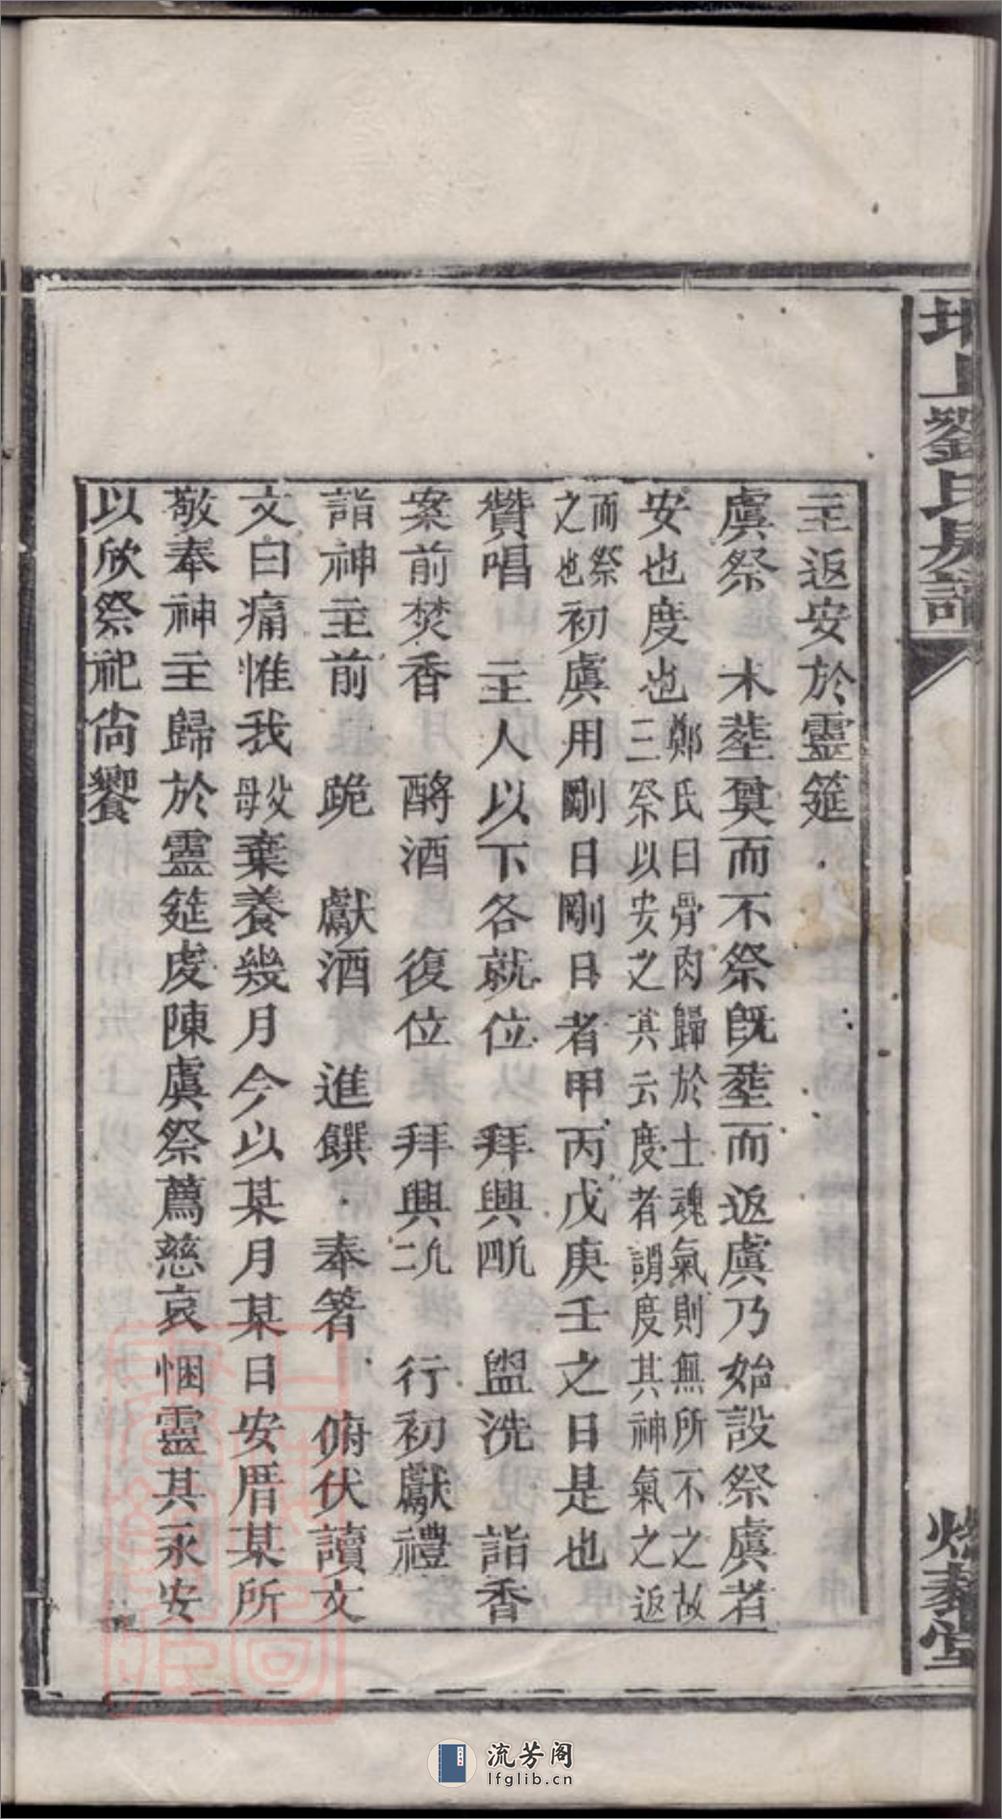 主返安於靈筵
虞祭　木塟奠而不祭旣塟而返虞乃始設祭虞者
安也度也鄭氏曰骨肉歸於土魂氣則無所不之故三祭以安之其云度者謂度其神氣之返
而祭之也初虞用剛日剛日者甲丙戊庚壬之日是也
贊唱　主人以下各就位　拜興四　盥洗　詣香
案前焚香　酹酒　復位　拜興二　行初獻禮
詣神主前　跪　獻酒　進饌　奉箸　俯伏讀文
文曰痛惟我父母棄養幾月今以某月某日安厝某所
敬奉神主歸於靈筵虔陳虞祭薦慈哀悃靈其永安
以欣祭祀尙饗
劉氏
流芳阁
lfglib.cn